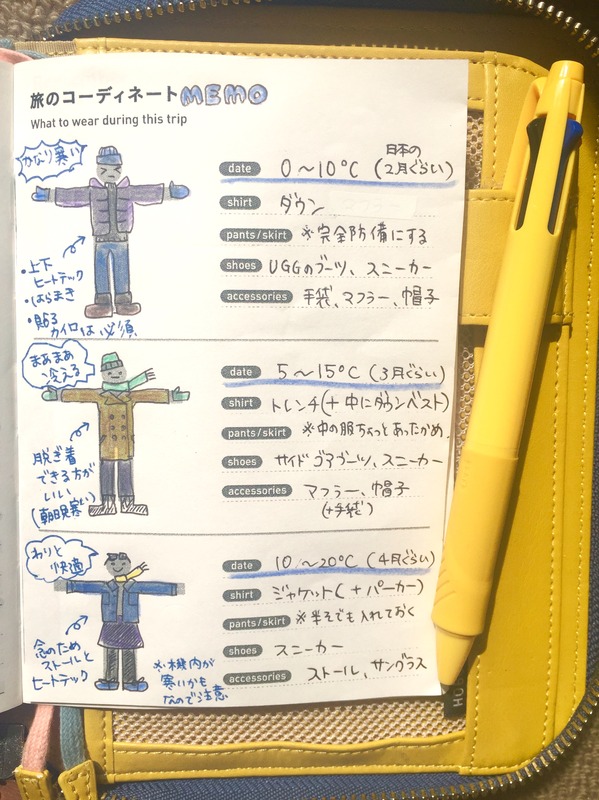 旅のコーディネートMEMO
What to wear during this trip
かなり寒い
・上下
ヒートテック
・はらまき
・貼る
カイロは必須
日本の
date 0〜10℃ (2月ぐらい)
shirt ダウン
pants/skirt ※完全防備にする
shoes UGGのブーツ、スニーカー
accessories 手袋、マフラー、帽子
まあまあ
冷える
脱ぎ着
できる方が
いい
(朝晩寒い)
date 5〜15℃ (3月ぐらい)
shirt トレンチ(+中にダウンベスト)
pants/skirt ※中の服ちょっとあったかめ
shoes サイドゴアブーツ、スニーカー
accessories マフラー、帽子
(+手袋)
わりと
快適
念のため
ストールと
ヒートテック
※機内が
寒いかも
なので注意
date 10〜20℃ (4月ぐらい)
shirt ジャケット(+パーカー)
pants/skirt ※半そでも入れておく
shoes スニーカー
accessories ストール、サングラス
HO